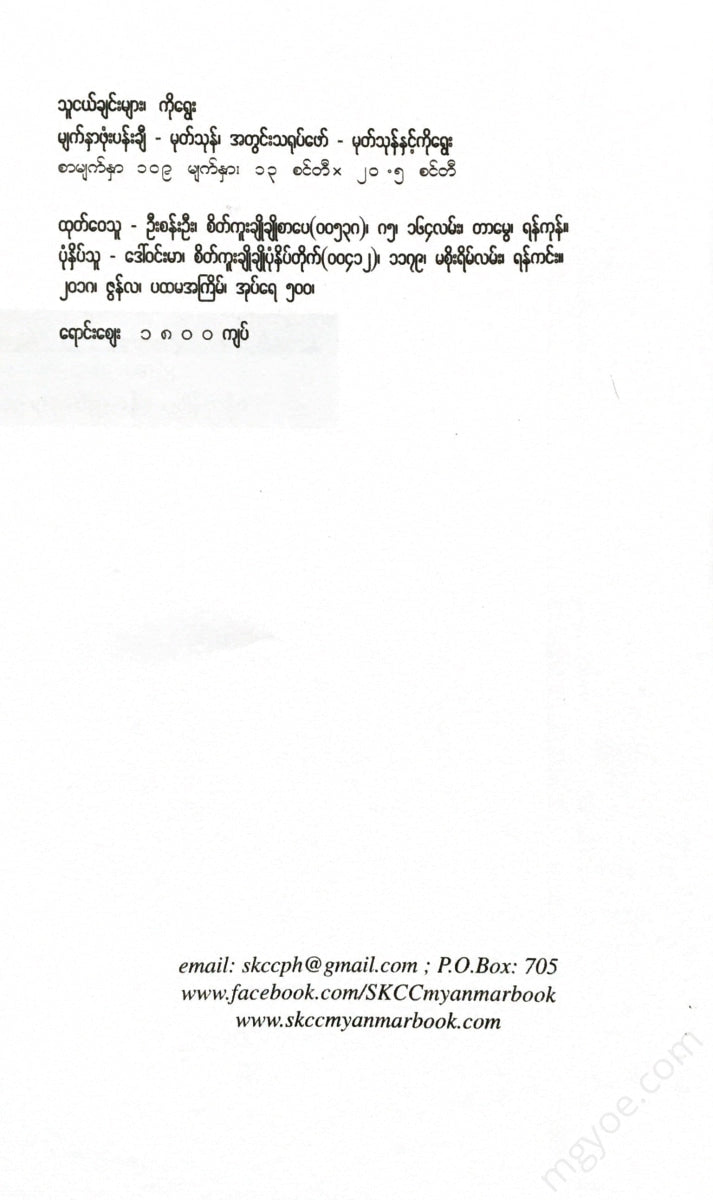 သူငယ်ချင်းများ၊ ကိုရွေး
မျက်နှာဖုံးပန်းချီ - မုတ်သုန်၊ အတွင်းသရုပ်ဖော် - မုတ်သုန်နှင့်ကိုရွေး
စာမျက်နှာ ၁၀၉ မျက်နှာ၊ ၁၃ စင်တီ× ၂၀.၅ စင်တီ
ထုတ်ဝေသူ - ဦးစန်းဦး၊ စိတ်ကူးချိုချိုစာပေ(၀၀၅၃၈)၊ ၈၅၊ ၁၆၄လမ်း၊ တာမွေ၊ ရန်ကုန်။
ပုံနှိပ်သူ - ဒေါ်ဝင်းမာ၊ စိတ်ကူးချိုချိုပုံနှိပ်တိုက်(၀၀၄၁၂)၊ ၁၁၇၉၊ မစိုးရိမ်လမ်း၊ ရန်ကင်း။
၂၀၁၈၊ ဇွန်လ၊ ပထမအကြိမ်၊ အုပ်ရေ ၅၀၀၊
ရောင်းဈေး ၁ ၈ ၀ ၀ ကျပ်
email: skccph@gmail.com ; P.O.Box: 705
www.facebook.com/SKCCmyanmarbook
www.skccmyanmarbook.com
mgyoe.com